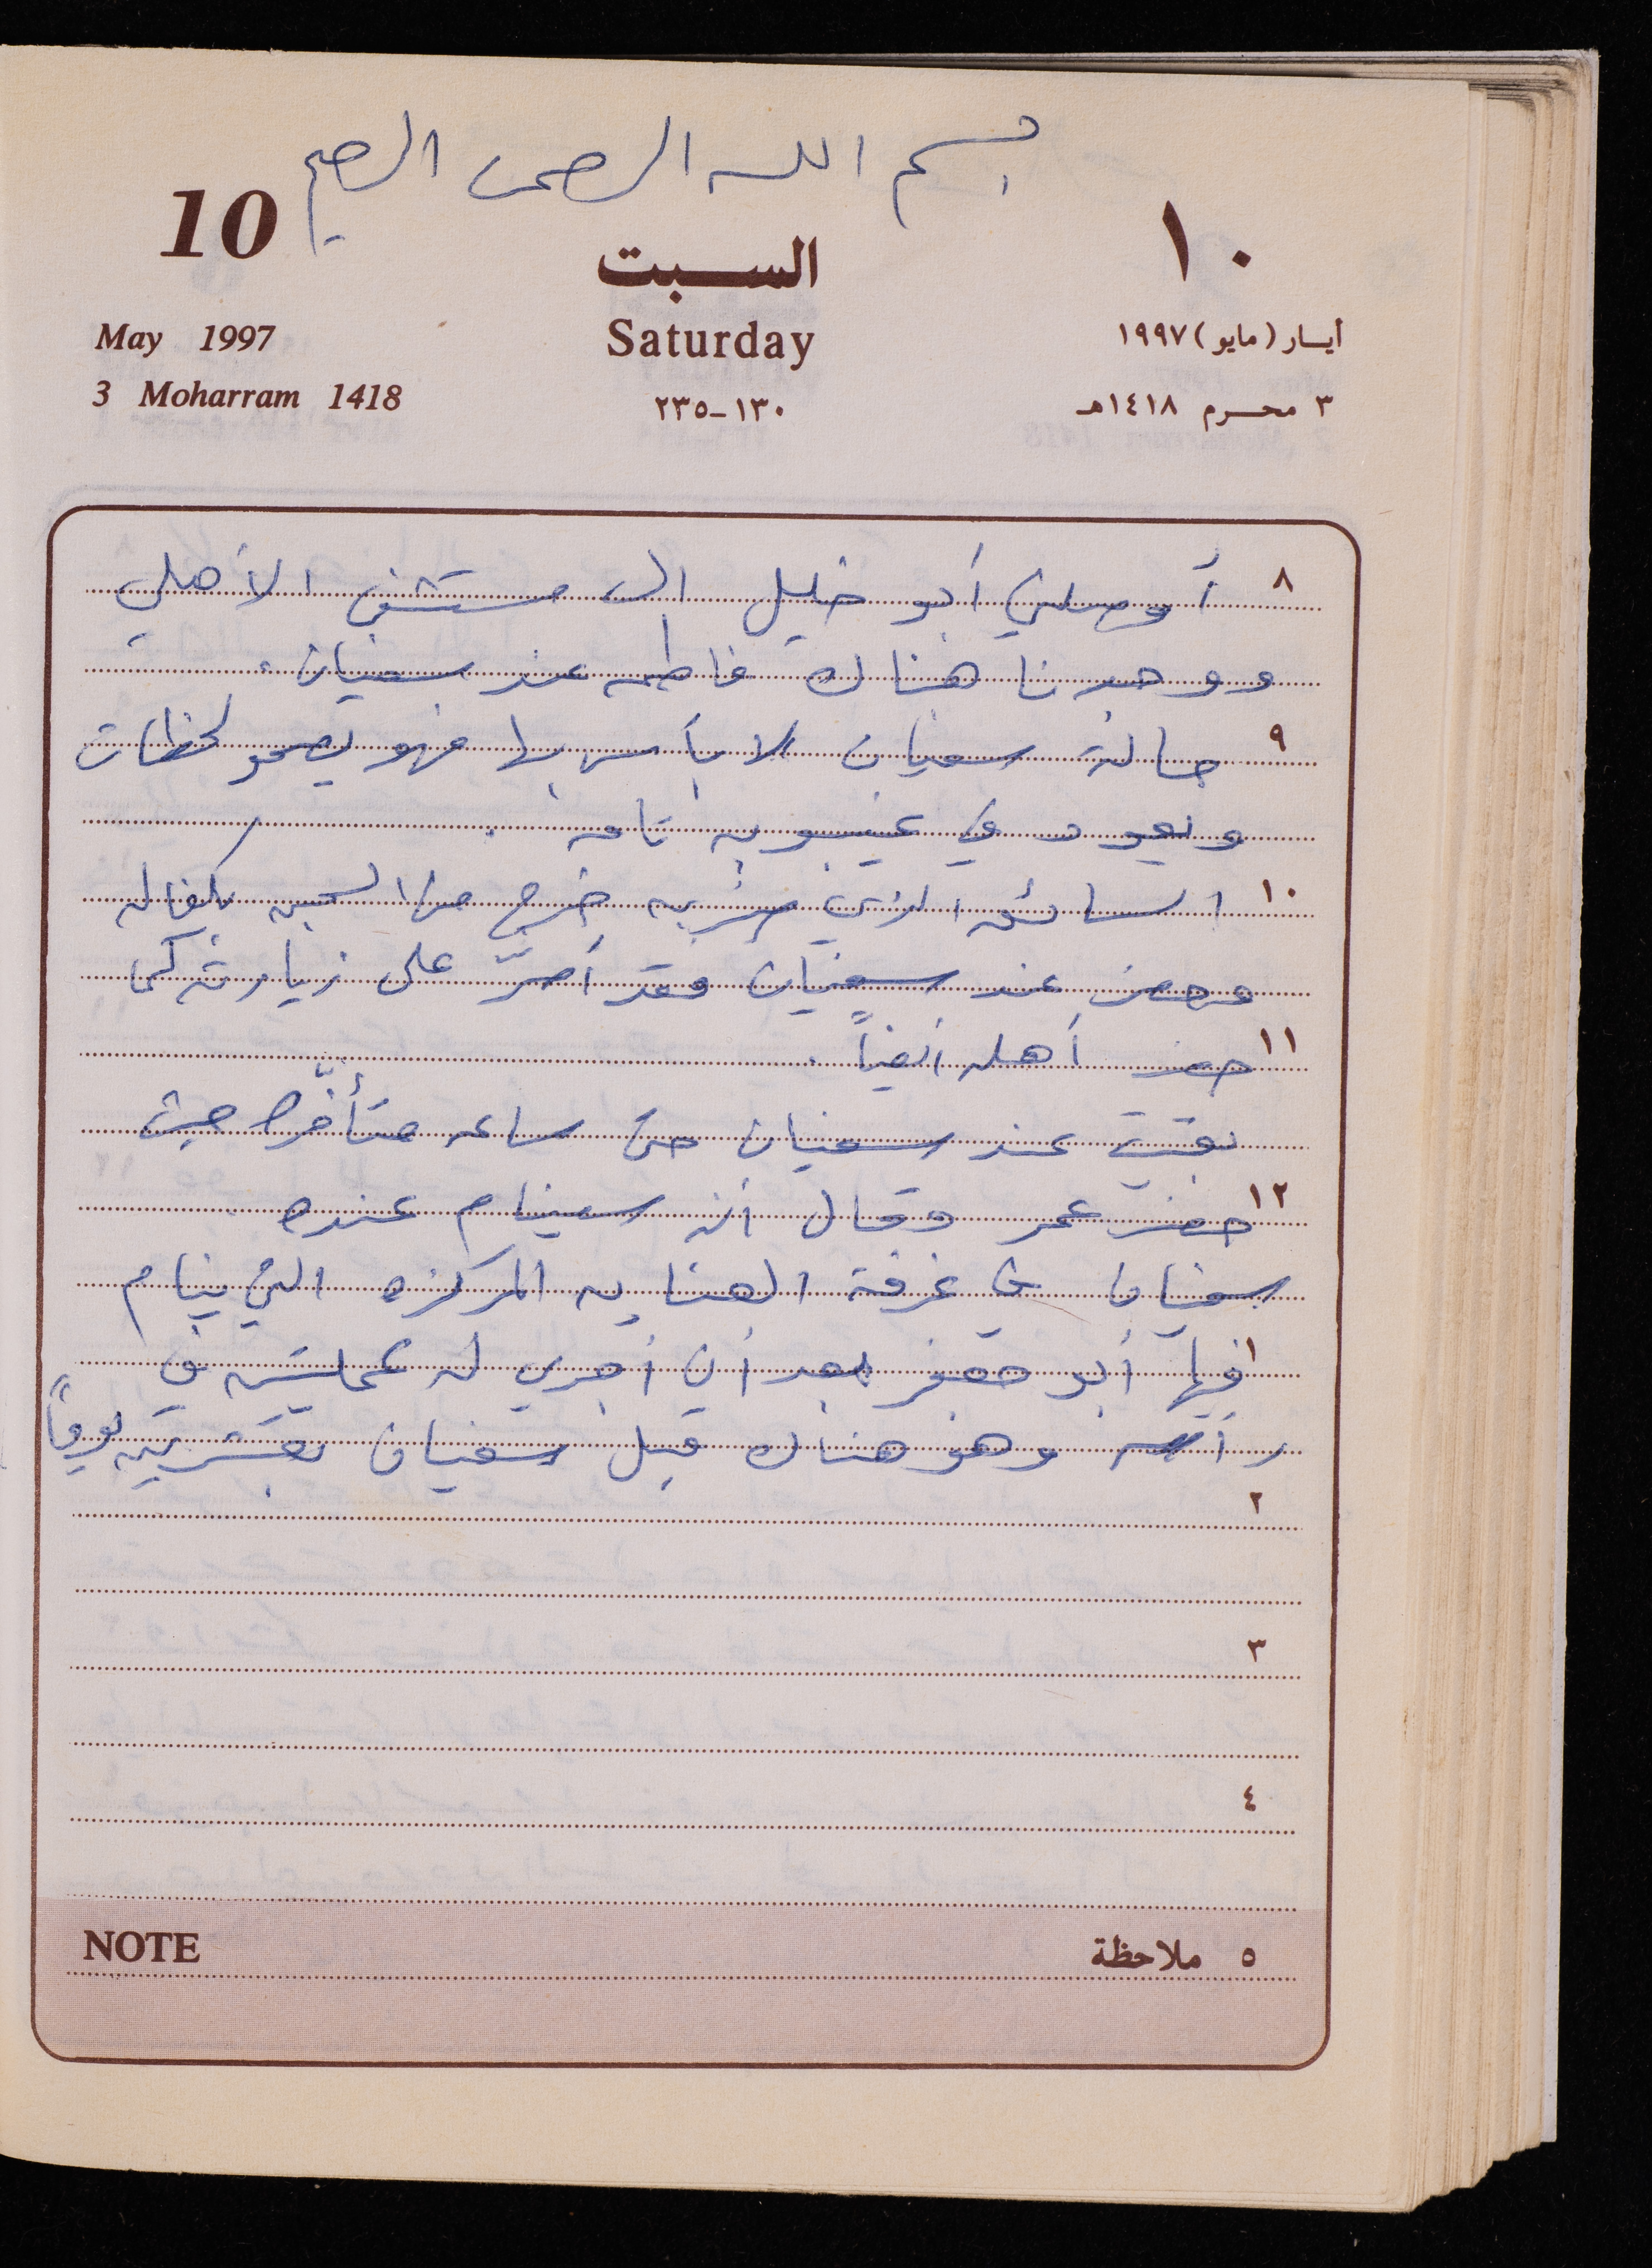 بسم الله الرحمن الرحيم
10 ١٠
السبت
May 1997 Saturday أيار (مايو) ١٩٩٧
3 Moharram 1418 ١٣٠-٢٣٥ ٣ محرم ١٤١٨هـ
٨ أوصلني أبو خليل الى مستشفى الأهلي
ووجدنا هناك فاطمه عند سفيان.
٩ حالة سفيان لا بأس بها فهو يصحو لحظات
ويعود في غيبوبه تامه .
١٠ السائق الذي ضربه خرج من السجن بكفاله
وحضر عند سفيان فقد أصرّ على زيارته كما
١١ حضر أهله أيضاً .
بقيت عند سفيان حتى ساعه متأخّره حيث
١٢ حضر عمر وقال أنه سينام عنده .
سفيان في غرفة العنايه المركزه التي ينام
١ فيها أبو جعفر بعد أن أجري له عمليتين في
رأسه وهو هناك قبل سفيان بعشرين يوماً
٢
٣
٤
NOTE ٥ ملاحظة